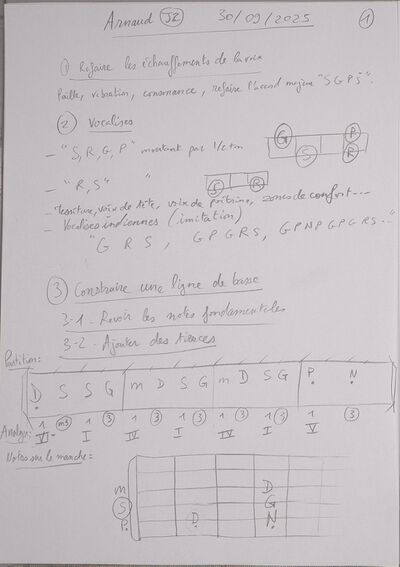 Arnaud J2 30/09/2025 1
① Refaire les échauffements de la voix
Paille, vibration, consonance, refaire l'accord majeur "S G P Ṡ".
② Vocalises
- "S, R, G, P" montant par 1/2 tm
G P
S R
- "R, S" "
S R
- Tessiture, voix de tête, voix de poitrine, zones de confort...
- Vocalises indiennes (imitation)
"G R S, G P G R S, G P N P G P G R S..."
③ Construire une ligne de basse
3-1- Revoir les notes fondamentales
3-2- Ajouter des tierces
Partition:
D S S G m D S G m D S G P N
Analyse: 1 m3 1 3 1 3 1 3 1 3 1 3 1 3
VI- I IV I IV I V
Notes sur le manche =
m D
S G
P D N